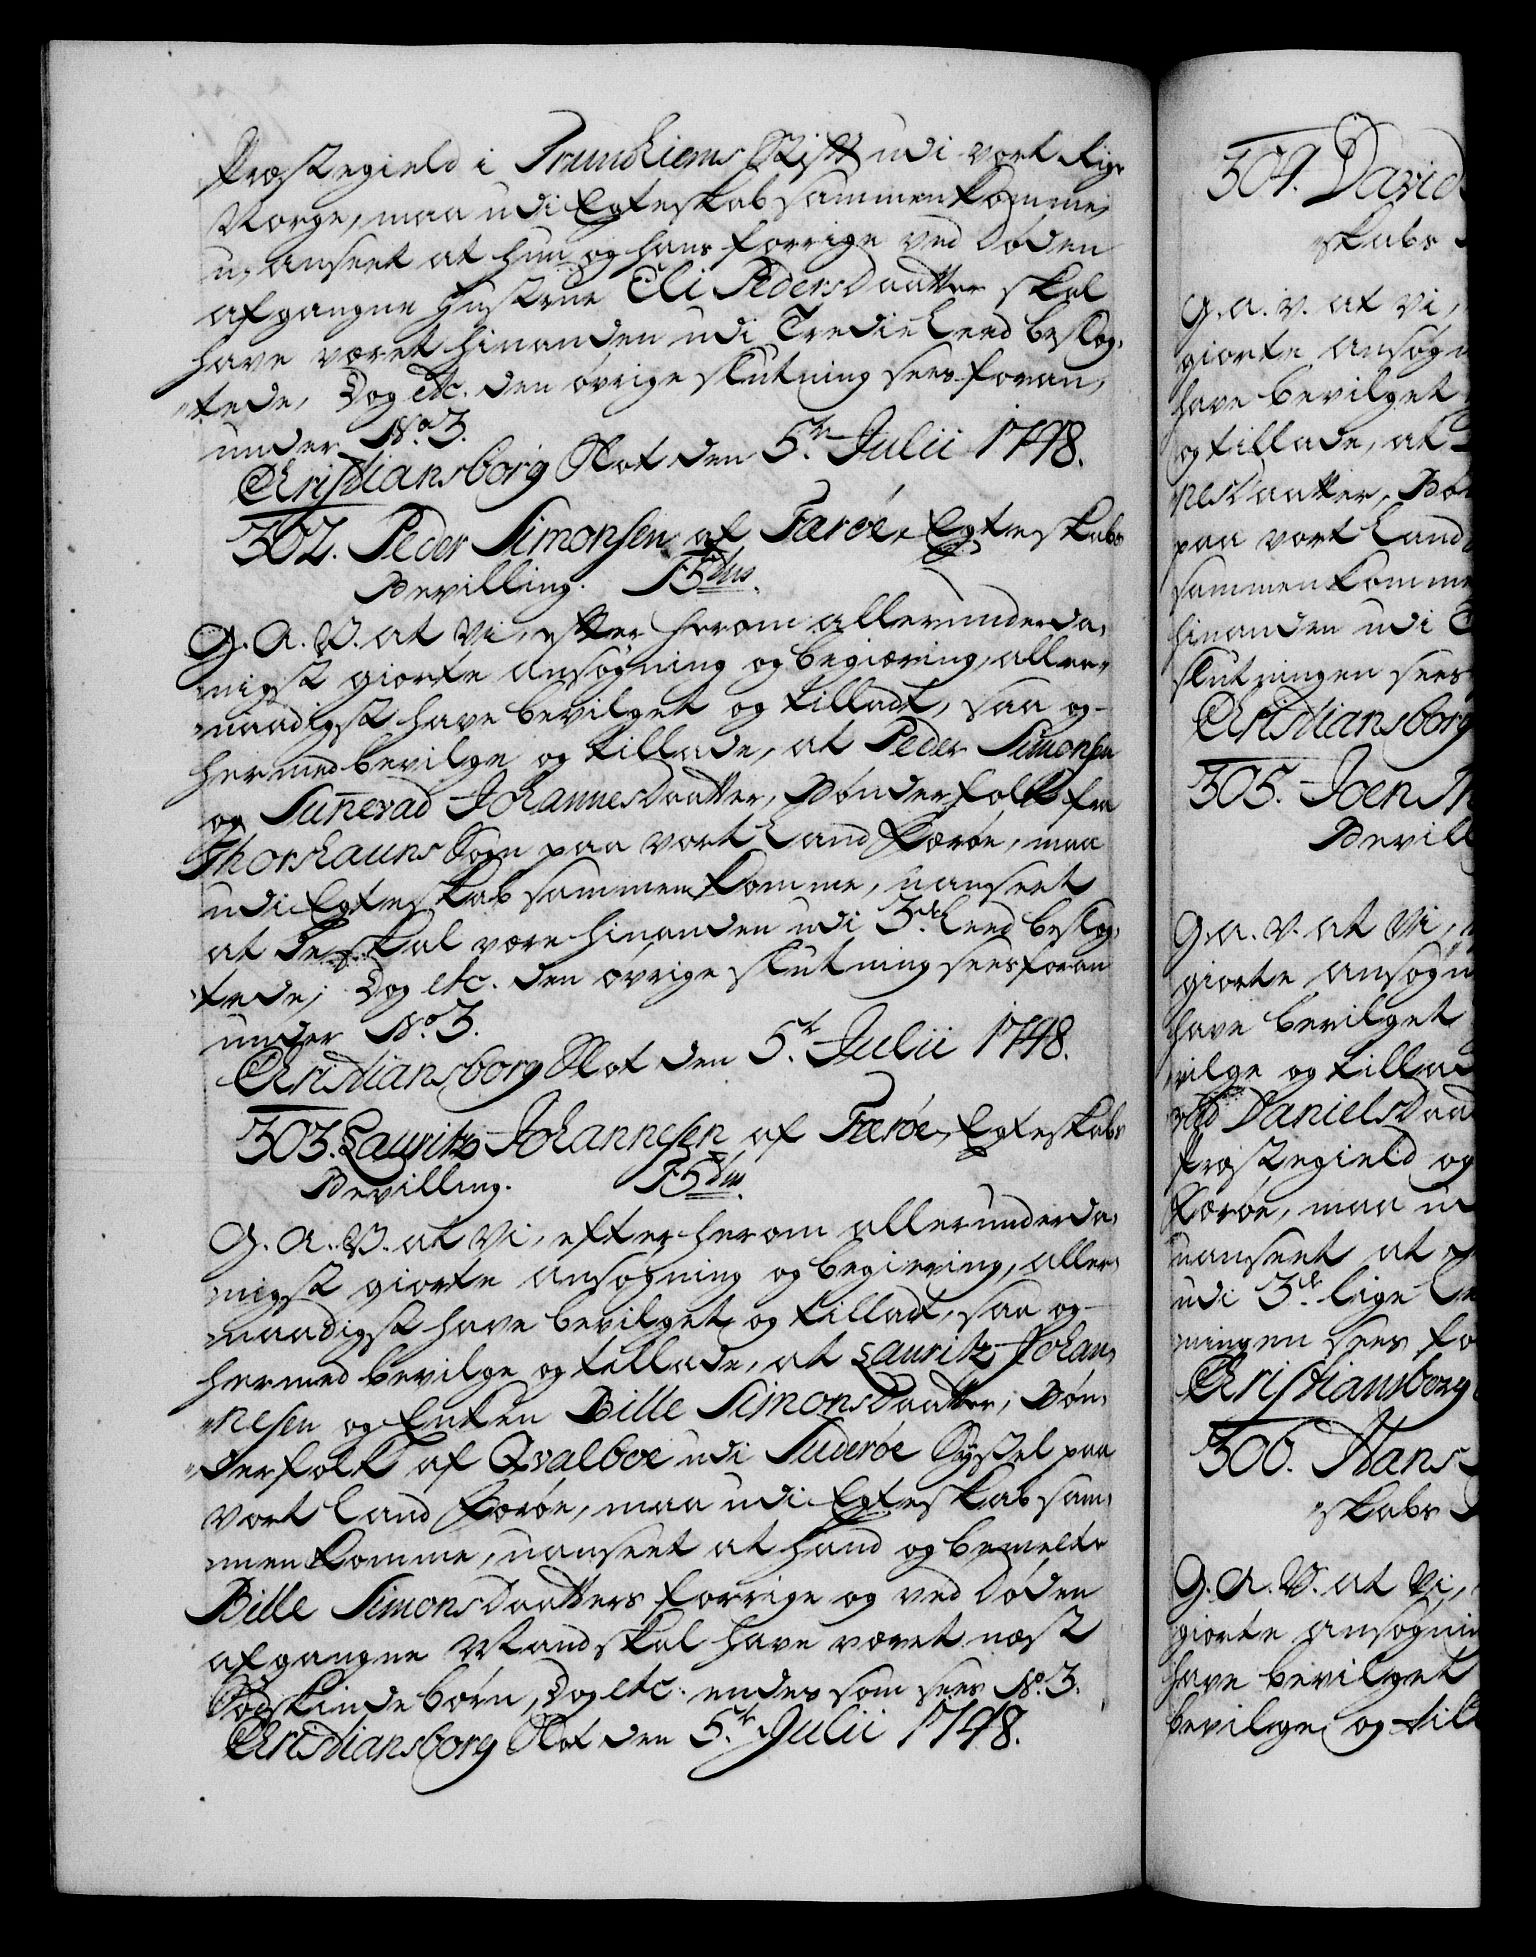 Præstegield i Trundhiems Stift udi vort Rige
Norge, maa udi Egteskab sammenkomme,
u-anseet at hun og hans forrige ved Døden
afgangne Hustrue Eli PedersDaatter skal
have været hinanden udi Tredie Leed beslæg-
tede, Dog etc. den øvrige slutning sees foran,
under No. 3.
Christiansborg Slot den 5te Julii 1748.
302. Peder Simonsen af Færöe, Egteskabs
Bevilling.
G. A. V. at Vi, efter herom allerunderda-
nigst giorte ansøgning og begiæring, aller-
naadigst have bevilget og tilladt, saa og-
hermed bevilge og tillade, at Peder Simonsen
og Sunevad JohannesDaatter, Bønderfolk fra
Thorshauns Sogn paa vort Land Færøe, maa
udi Egteskab sammenkomme, uanseet
at de skal være hinanden udi 3de Leed beslæg-
tede; Dog etc. den øvrige slutning sees foran
under No. 3.
Christiansborg Slot den 5te Julii 1748.
303. Lauritz Johannesen af Færöe, Egteskabs
Bevilling.
G. A. V. at Vi, efter herom allerunderda-
nigst giorte ansøgning og begiering, aller-
naadigst have bevilget og tilladt, saa og-
hermed bevilge og tillade, at Lauritz Johan-
nesen og Enken Bille SimonsDaatter, Bøn-
derfolk af Qvalboe udi Suderöe Syssel paa
vort Land Færøe, maa udi Egteskab sam-
menkomme, uanseet at hand og bemelte
Bille SimonsDaatters forrige og ved Døden
afgangne Mand skal have været næst
Sødskindebørn, Dog etc. endes som sees No. 3.
Christiansborg Slot den 5te Julii 1748.
304. David
skabs
G. a. v. at Vi,
giorte ansøgn
have bevilget
og tillade, at
nesDaatter, Bøn
paa vort Land
sammenkomme
hinanden udi
slutningen sees
Christiansborg
305. Joen
Bevill
G. a. v. at Vi,
giorte ansøgn
have bevilget
vilge og tillad
DanielsDaa
Præstegield og
Færøe, maa u
uanseet at
udi 3de lige Le
ningen sees fo
Christiansborg
306. Hans
skabs
G. A. V. at Vi,
giorte ansøgnin
have bevilget
bevilge og till